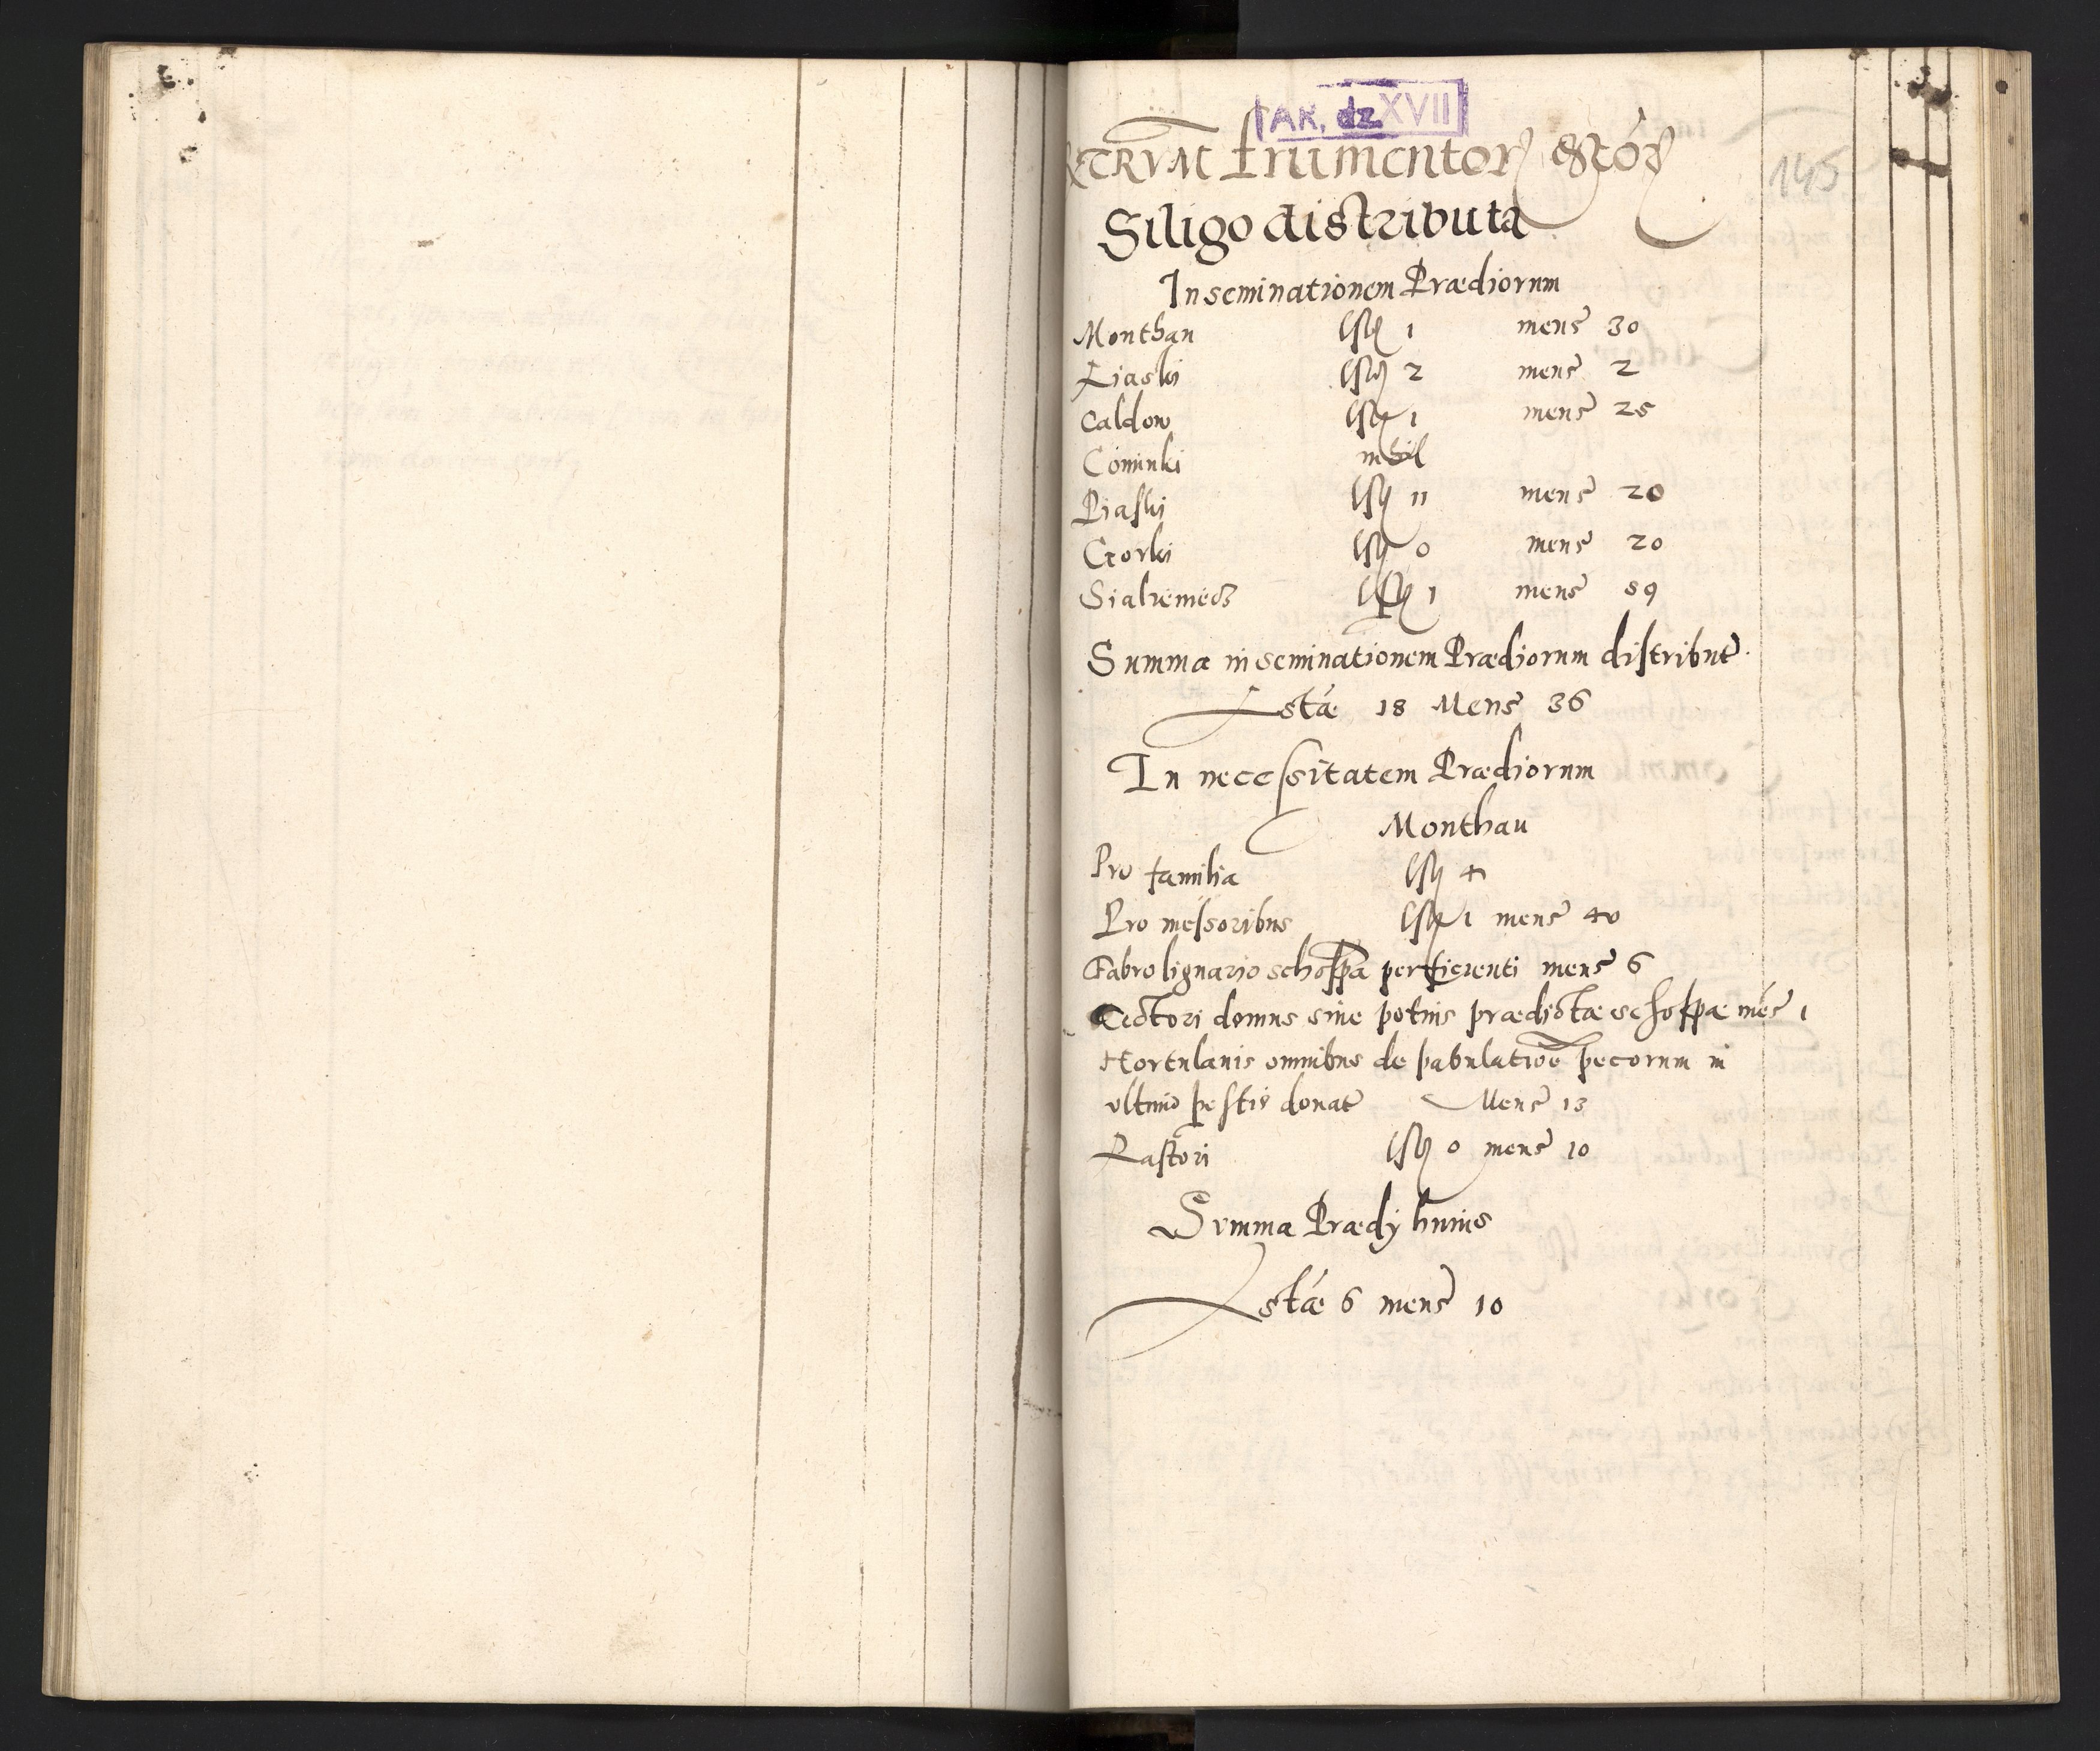 AK, dz XVII
145
frumentor
Siligo distributa
In seminationem Prædiorum
Monthau lst 1 mens 30
Liaski lst 2 mens 2
Caldow lst 1 mens 25
Cominki nihil
Piaski lst 11 mens 20
Gorki lst 0 mens 20
lst 1 mens 59
Summa in seminationem Prædiorum distribut.
Lstæ 18 Mens 36
In necessitatem Prædiorum
Monthau
Pro familia lst 4
Pro messoribus lst 1 mens 40
Fabro lignario schospa perficienti mens 6
Tectori domus siue potius prædictæ schospæ mēs 1
Hortulanis omnibus de pabulatiōe pecorum in
vltimo pestis donat Mens 13
Pastori lst 0 mens 10
Summa Prædij huius
Lstæ 6 mens 10